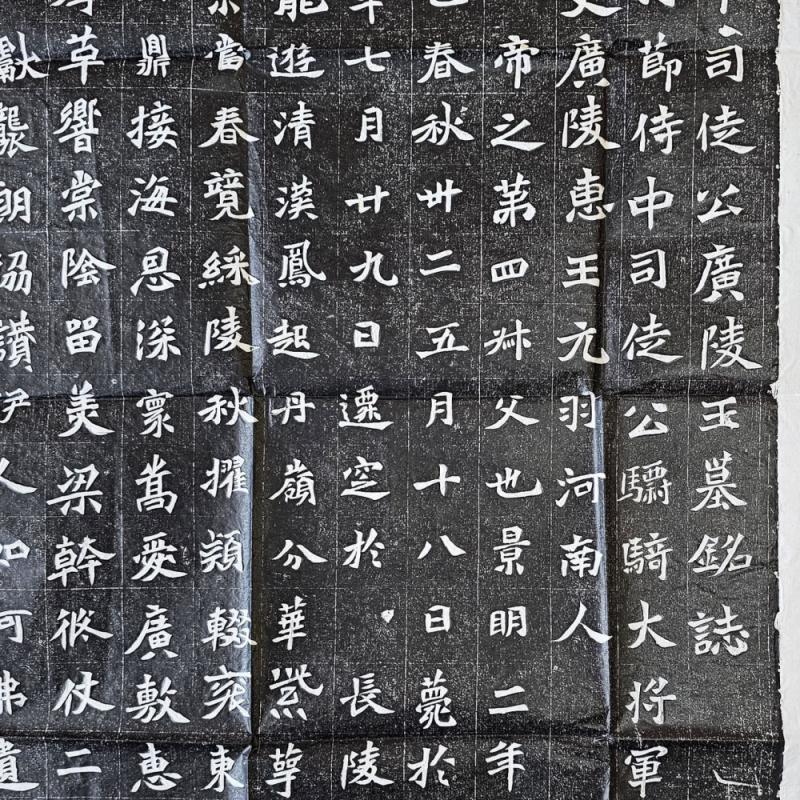 司徒公廣陵王墓銘誌
節侍中司徒公驃騎大將軍
廣陵惠王元羽河南人
帝之第四叔父也景明二年
春秋卅二五月十八日薨於
年七月廿九日遷窆於長陵
能遊清漢鳳起丹嶺分華紫萼
當春競綵陵秋擢穎輟袞東
鼎接海恩深寰嵩愛廣敷惠
草響棠陰留美梁幹俄仗二
獻襲朝協讚伊人如何弗